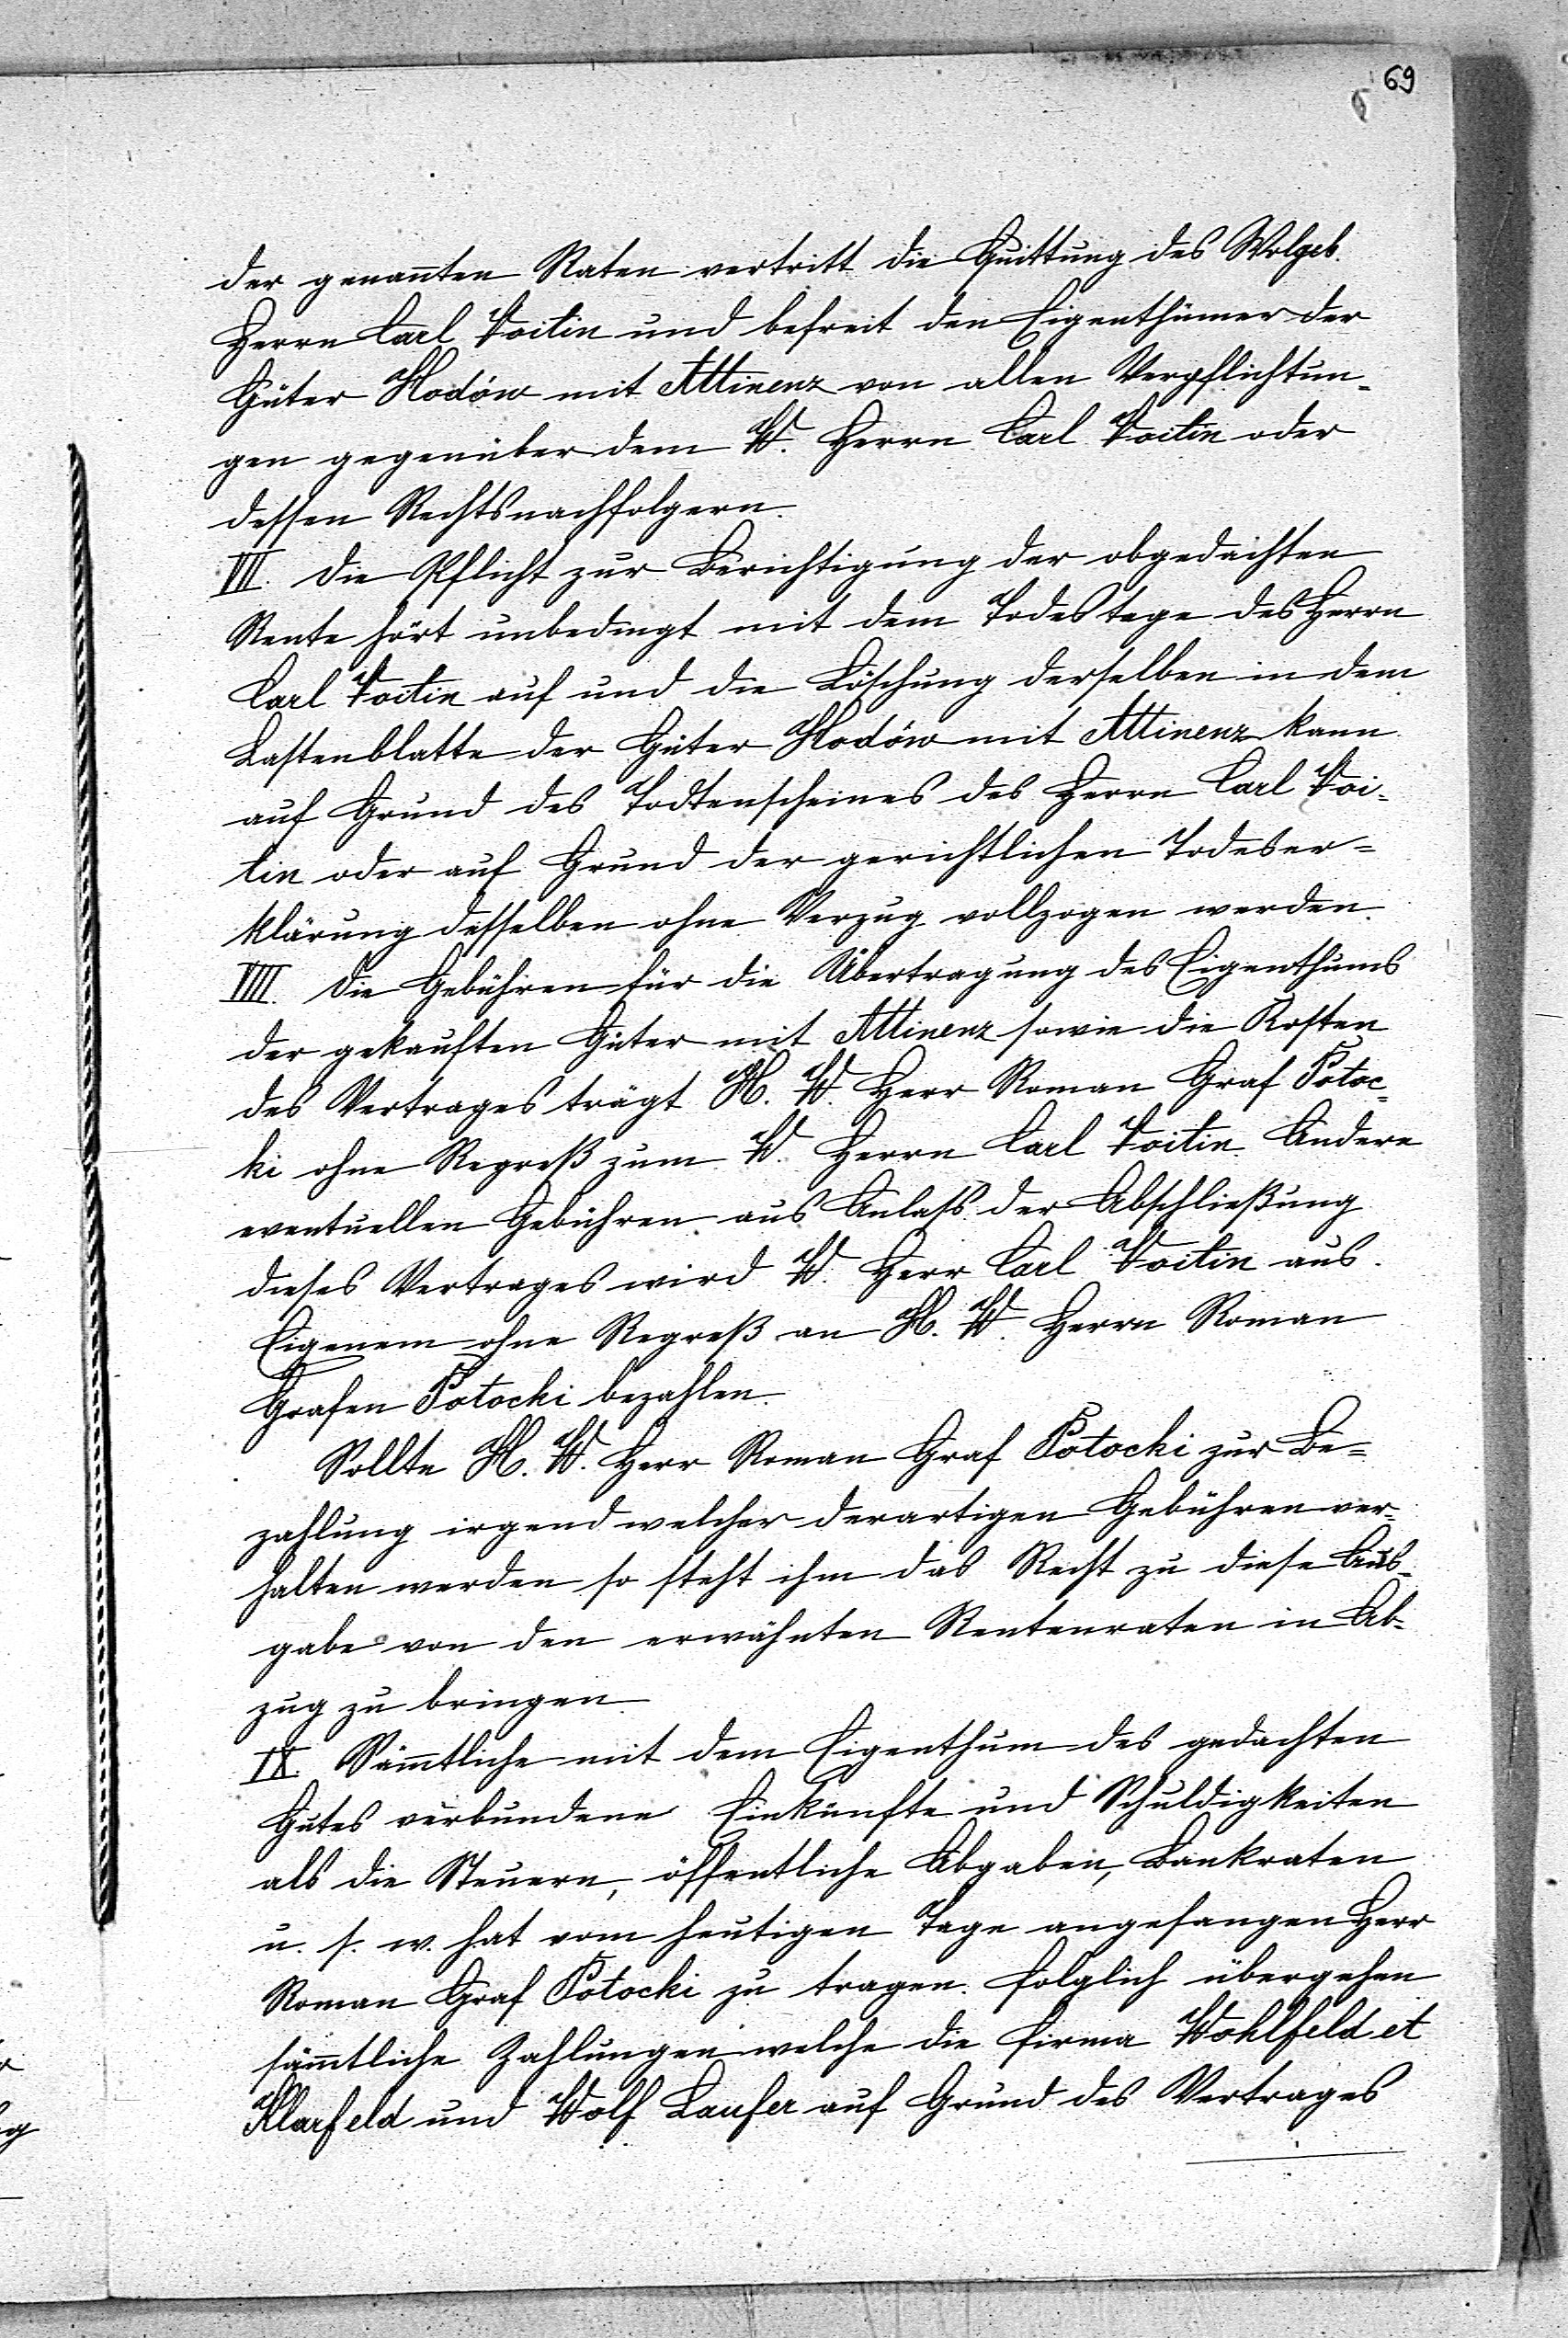 69
der genannten Raten vertritt die Quittung des Wolgeb.
Herrn Carl Voitin und befreit den Eigenthümer der
Güter Hodów mit Attinenz von allen Verpflichtun-
gen gegenüber dem W. Herrn Carl Voitin oder
dessen Rechtsnachfolgern.
VII. Die Pflicht zur Berichtigung der obgedachten
Rente hört unbedingt mit dem Todestage des Herrn
Carl Voitin auf und die Löschung derselben in dem
Lastenblatte der Güter Hodów mit Attinenz kann
auf Grund des Todtenscheines des Herrn Carl Voi-
tin oder auf Grund der gerichtlichen Todeser=
klärung desselben ohne Verzug vollzogen werden.
VIII. Die Gebühren für die Übertragung des Eigenthums
der gekauften Güter mit Attinenz sowie die Kosten
des Vertrages trägt H. W. Herr Roman Graf Potoc-
ki ohne Regreß zum W. Herrn Carl Voitin. Andere
eventuellen Gebühren aus Anlass der Abschließung
dieses Vertrages wird W. Herr Carl Voitin aus
Eigenem ohne Regreß an H. W. Herrn Roman
Grafen Potocki bezahlen.
Sollte H. W. Herr Roman Graf Potocki zur Be=
zahlung irgend welcher derartigen Gebühren ver-
halten werden so steht ihm das Recht zu diese Aus-
gabe von den erwähnten Rentenraten in Ab-
zug zu bringen.
IX. Sämmtliche mit dem Eigenthum des gedachten
Gutes verbundene Einkünfte und Schuldigkeiten
als die Steuern, öffentliche Abgaben, Bankraten
u. s. w. hat vom heutigen Tage angefangen Herr
Roman Graf Potocki zu tragen. Folglich übergehen
sämmtliche Zahlungen welche die Firma Wohlfeld et
Klarfeld und Wolf Laufer auf Grund des Vertrages